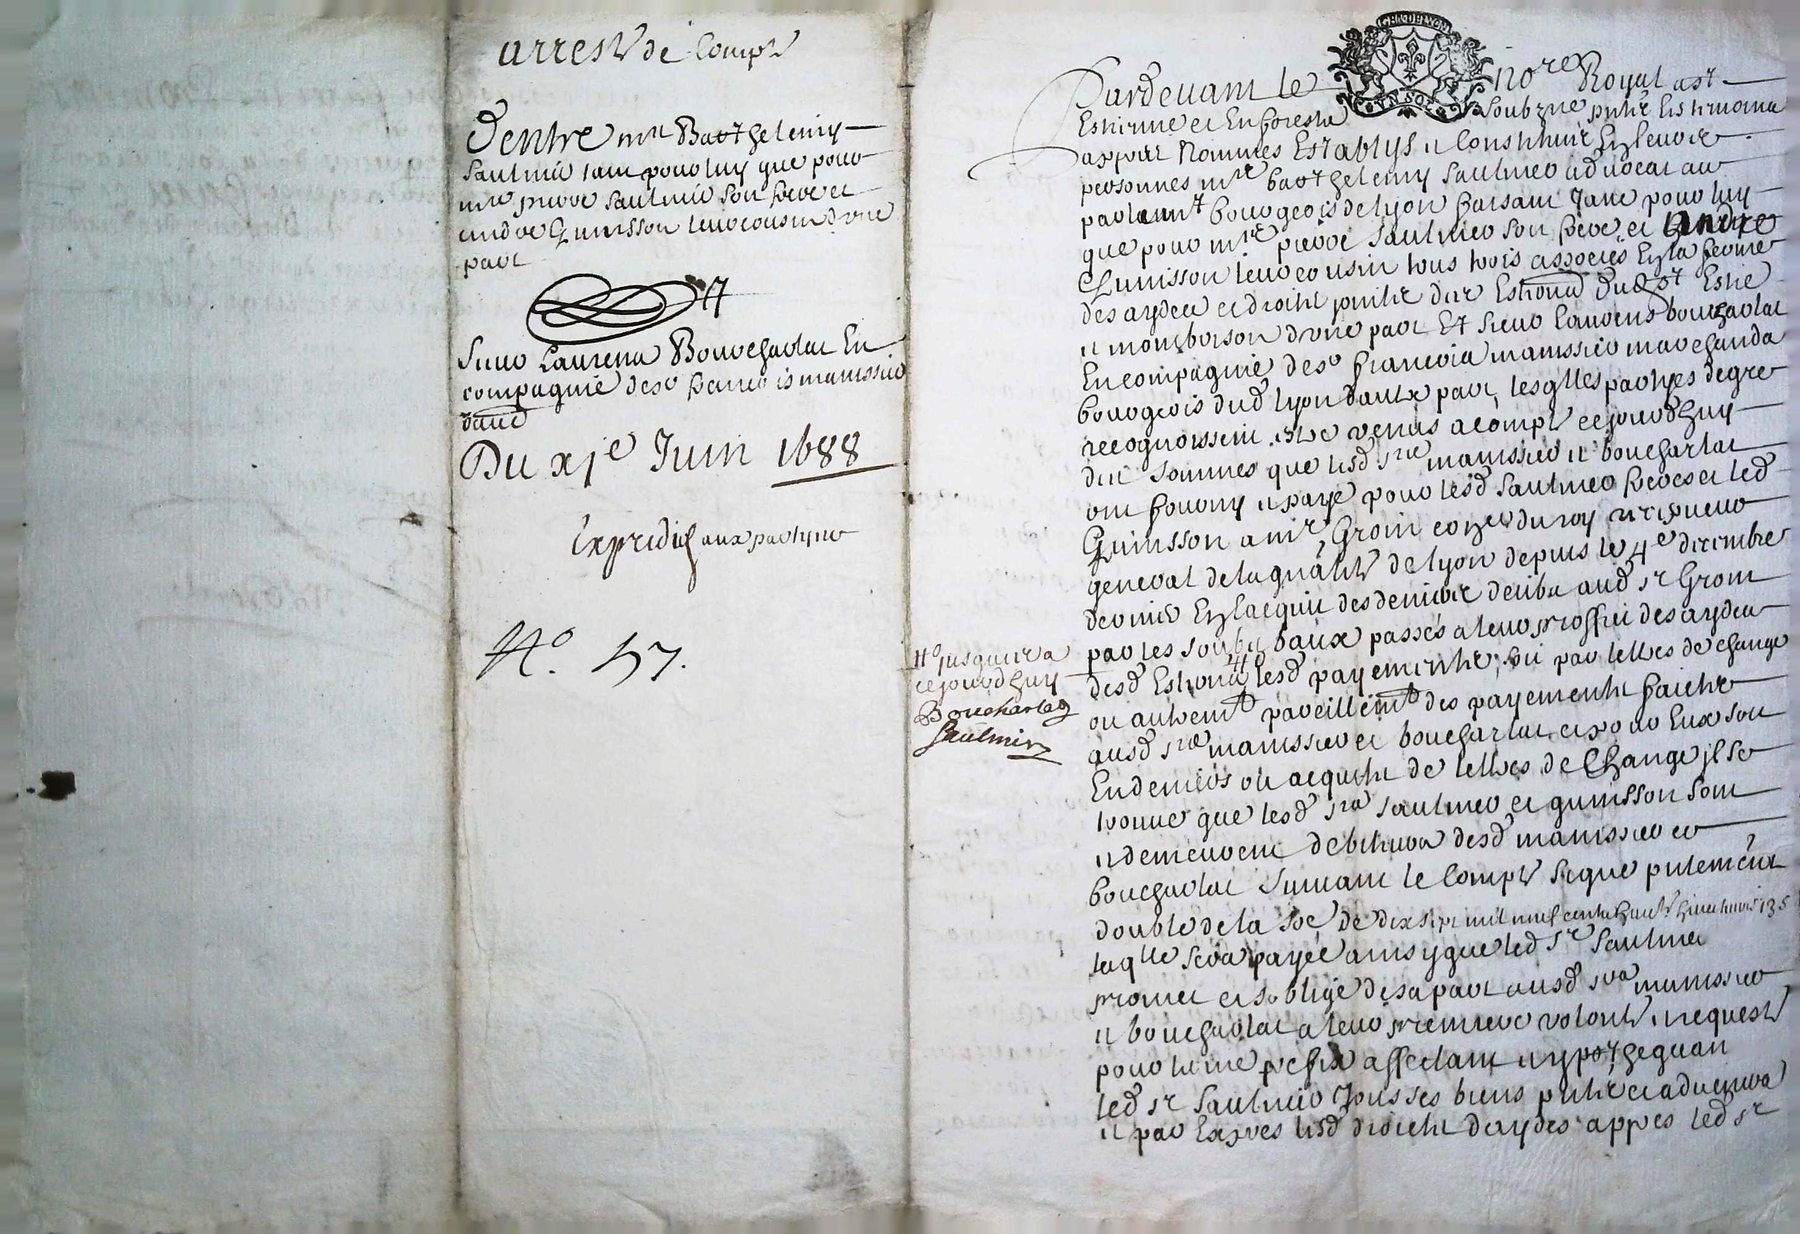 arrest de Compte
Dentre mre Barthelemy
Saulnier tant pour luy que pour
mre pierre Saulnier son frere et
andre Guinsson leur cousin d'une
part
Et
Sieur Laurens Bourcharlat En
compagnie de sr francois manissier
d'autre
Du xje Juin 1688
Expedié aux partyes
No. 57.
GEN DE LYON
UN SOL
Pardevant le nore Royal a st
Estienne et En forestz soubzne pntz tesmoins
appres nommés Establys et Constitués En leurs
personnes mre barthelemy Saulnier advocat au
parlemt bourgeois de Lyon faisant Tant pour luy
que pour mre pierre Saulnier son frere et Andre
Guinsson leur cousin tous trois associés En la ferme
des aydes et droits joints des Eslections dud st Estne
et montbrison d'une part Et sieur Laurens bourcharlat
En compagnie de sr francois manissier marchands
bourgeois dud Lyon d'autre part, lesqlles partyes de gré
recognoissent estre venus a compte ce jourdhuy
des sommes que lesd srs manissier et bourcharlat
ont fourny et payé pour lesd Saulnier freres et led
Guinsson a mr Groin coner du roy receveur
general de la gnalité de Lyon depuis le 4e decembre
dernier En lacquit des deniers deubs aud sr Groin
par les soubz baux passés a leur proffit des aydes
desd Eslections lesd payements, soit par lettres de change
ou autremt pareillemt des payements faicts
ausd srs manissier et bourcharlat, et par Eux soit
En deniers ou acquits de lettres de Change, il se
trouve que lesd srs Saulnier et guinsson sont
et demeurent debiteurs desd manissier et
bourcharlat suyvant le Compte signé pntement
double de la soe de dix sept mil neuf cents huict livres
laqlle sera payée ainsy que led sr Saulnier
promet et s'oblige de sa part ausd srs manissier
et bourcharlat a leur premiere volonté et requeste
pour terme prefix affectant et ypothequan
led sr Saulnier Tous ses biens pntz et advenirs
et par Expres lesd droicts d'aydes appres led sr
No jusques a
ce jourdhuy
Bourcharlat
Saulnier